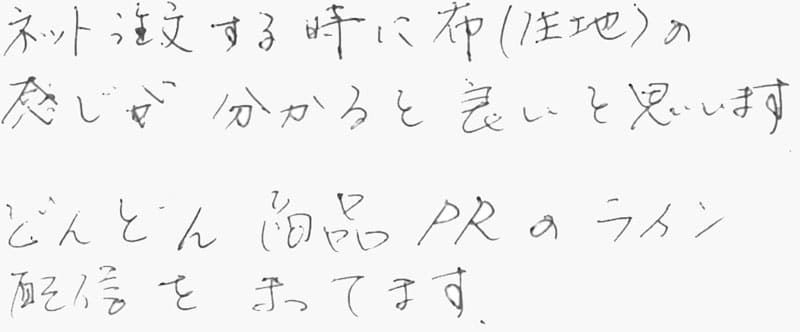 ネット注文する時に布(生地)の
感じが分かると良いと思います
どんどん商品PRのライン
配信をまってます.